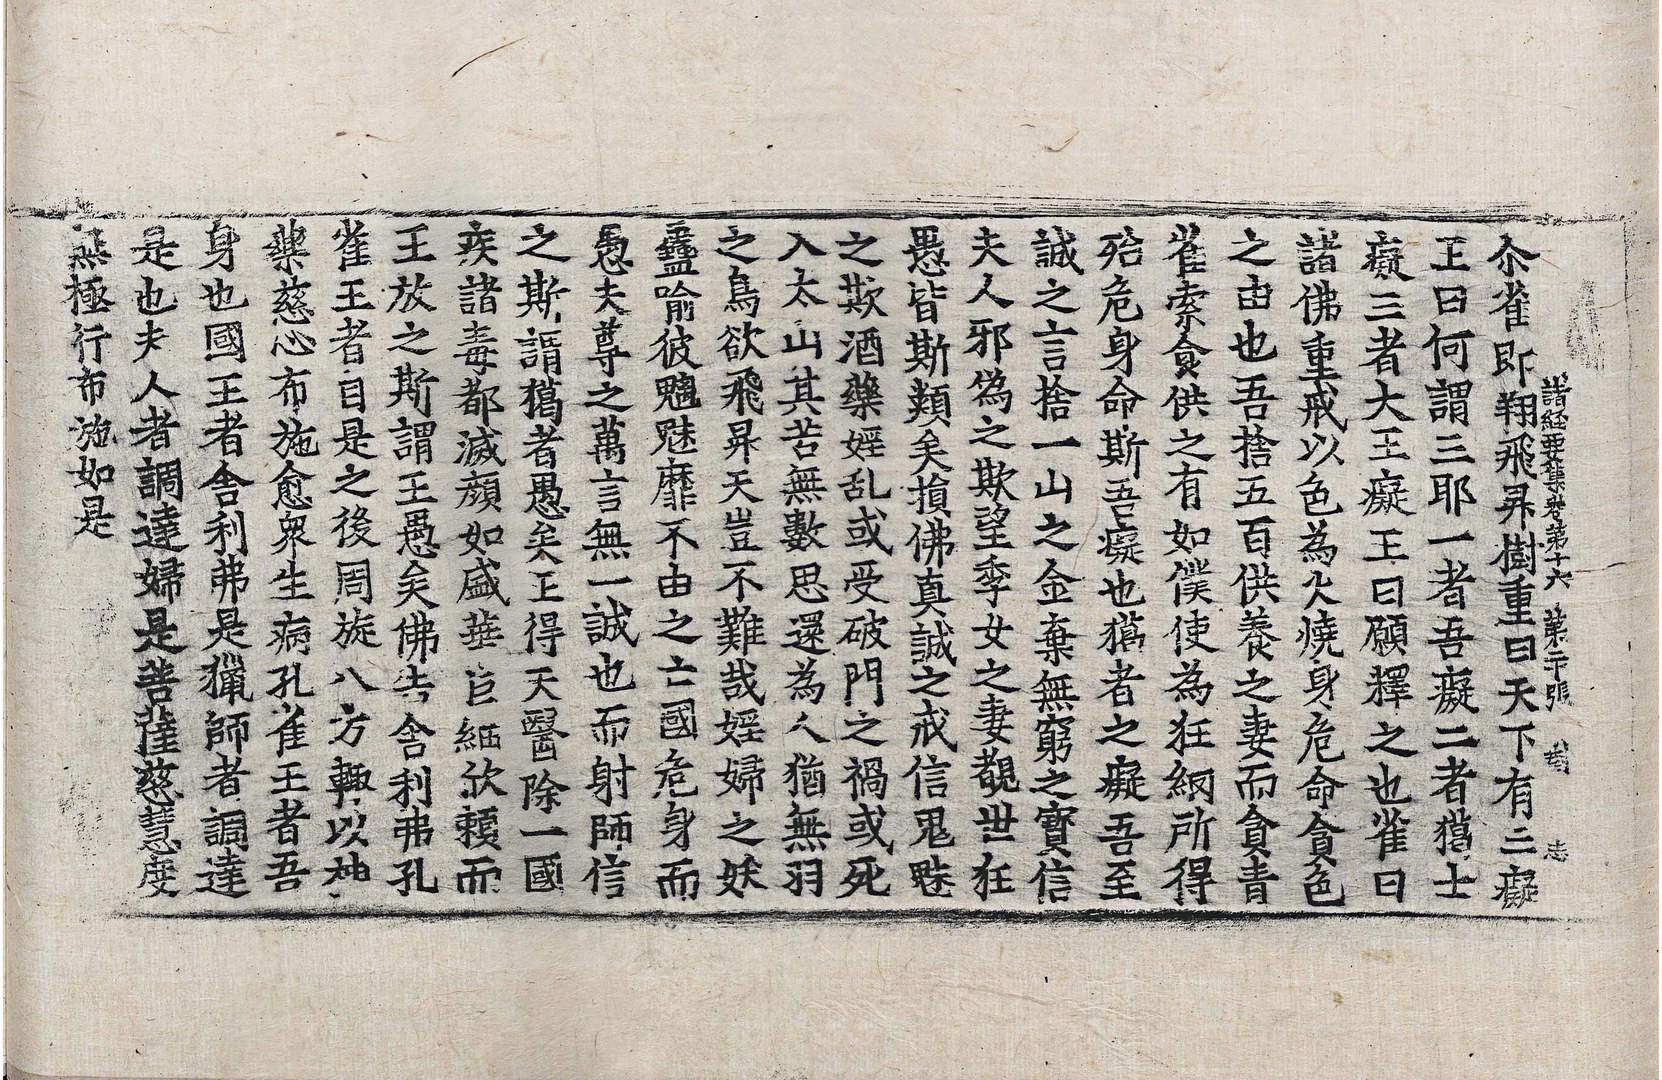 諸経要集卷第十六 第二十張 志
尒雀即翔飛昇樹重曰天下有三癡
王曰何謂三耶一者吾癡二者獦士
癡三者大王癡王曰願釋之也雀曰
諸佛重戒以色為火燒身危命貪色
之由也吾捨五百供養之妻而貪青
雀索食供之有如僕使為狂網所得
殆危身命斯吾癡也獦者之癡吾至
誠之言捨一山之金棄無窮之寶信
夫人邪偽之欺望季女之妻覩世狂
愚皆斯類矣損佛真誠之戒信鬼魅
之欺酒藥婬乱或受破門之禍或死
入太山其苦無數思還為人猶無羽
之鳥欲飛昇天豈不難哉婬婦之妖
蠱喻彼魑魅靡不由之亡國危身而
愚夫尊之萬言無一誠也而射師信
之斯謂獦者愚矣王得天醫除一國
疾諸毒都滅顏如盛華巨細欣賴而
王放之斯謂王愚矣佛告舍利弗孔
雀王者自是之後周旋八方輒以神
藥慈心布施愈衆生病孔雀王者吾
身也國王者舍利弗是獵師者調達
是也夫人者調達婦是菩薩慈慧度
無極行布施如是